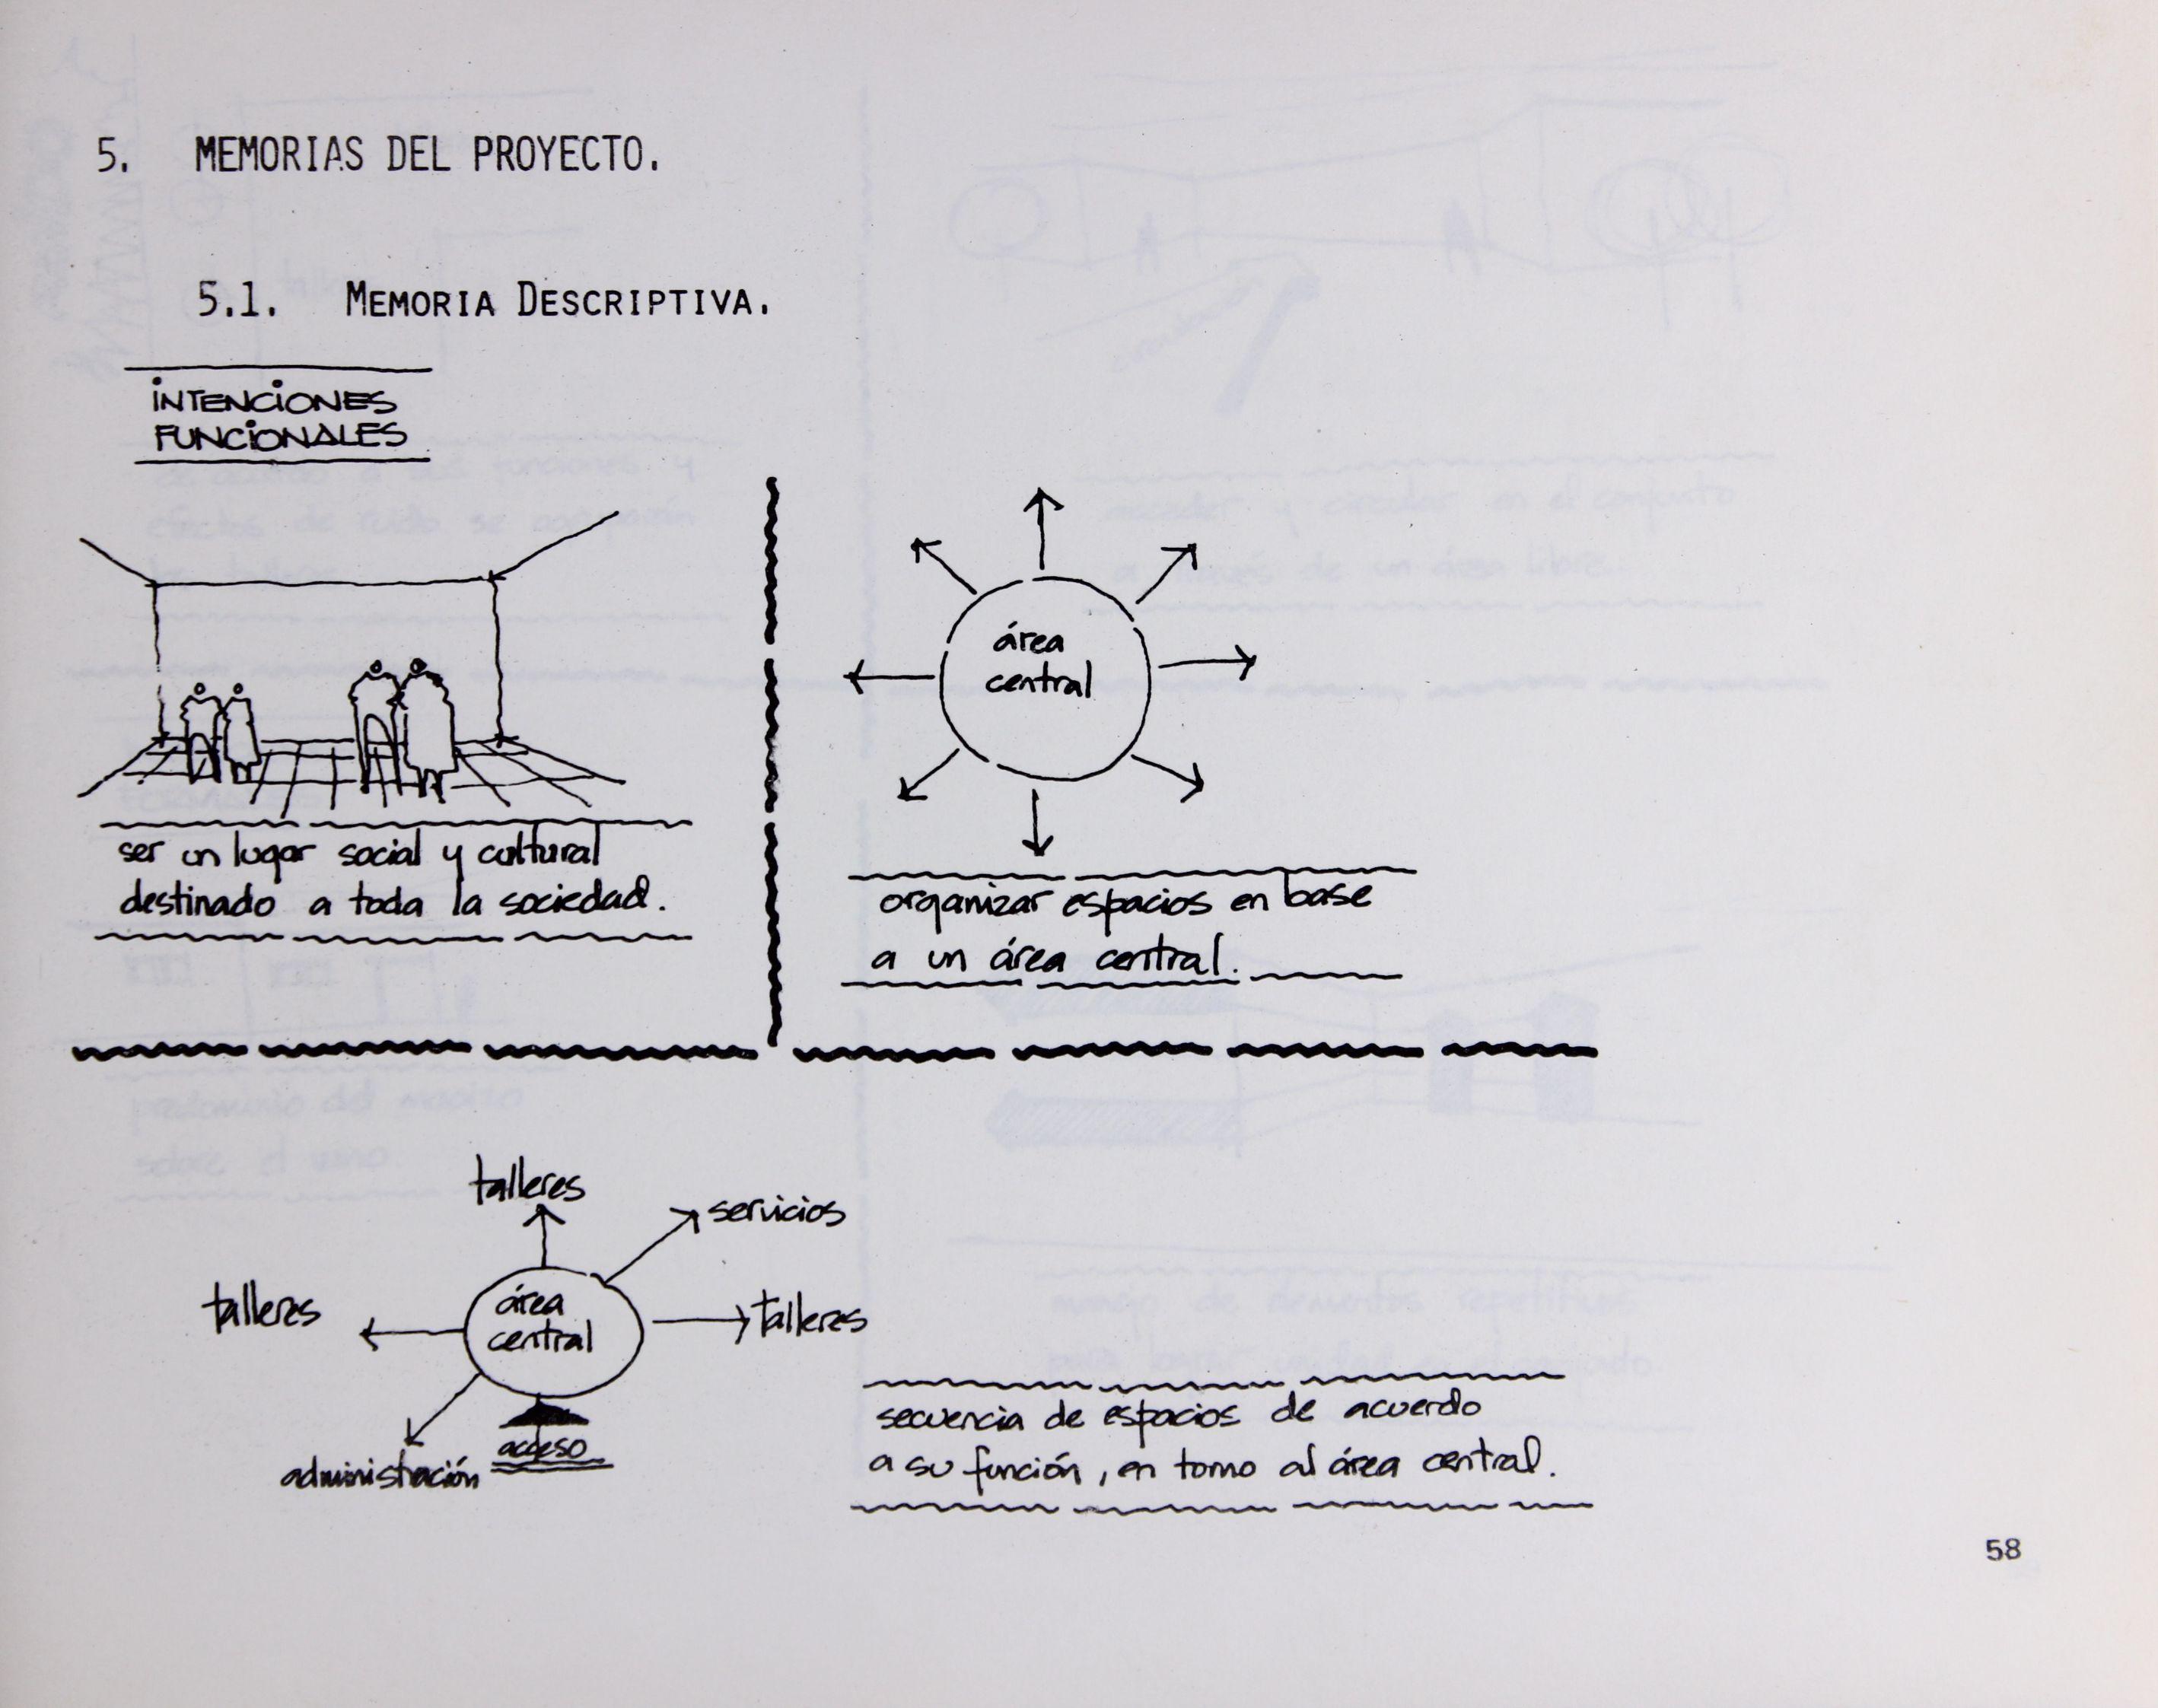 5. MEMORIAS DEL PROYECTO.
5.1. MEMORIA DESCRIPTIVA.
INTENCIONES
FUNCIONALES
ser un lugar social y cultural
destinado a toda la sociedad.
área
central
organizar espacios en base
a un área central.
talleres
servicios
talleres
área
central
talleres
administración
acceso
secuencia de espacios de acuerdo
a su función, en torno al área central.
58